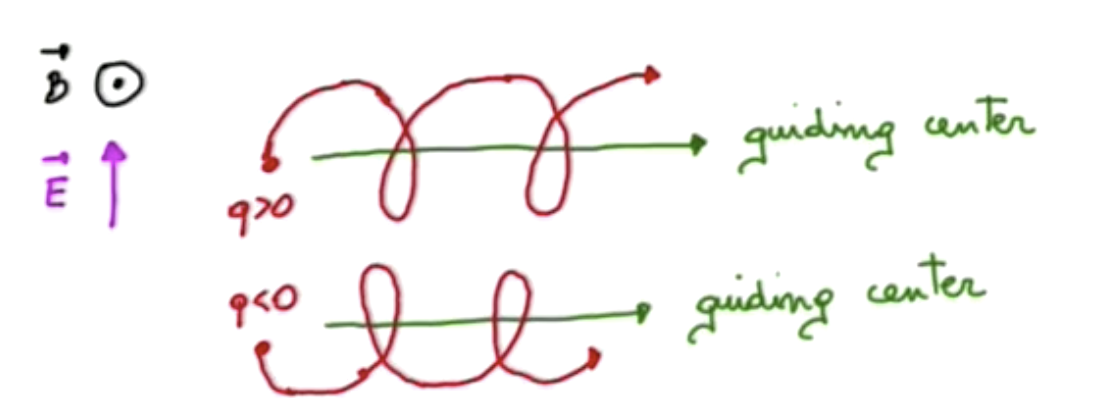 B⃗
E⃗
guiding center
q>0
q<0
guiding center